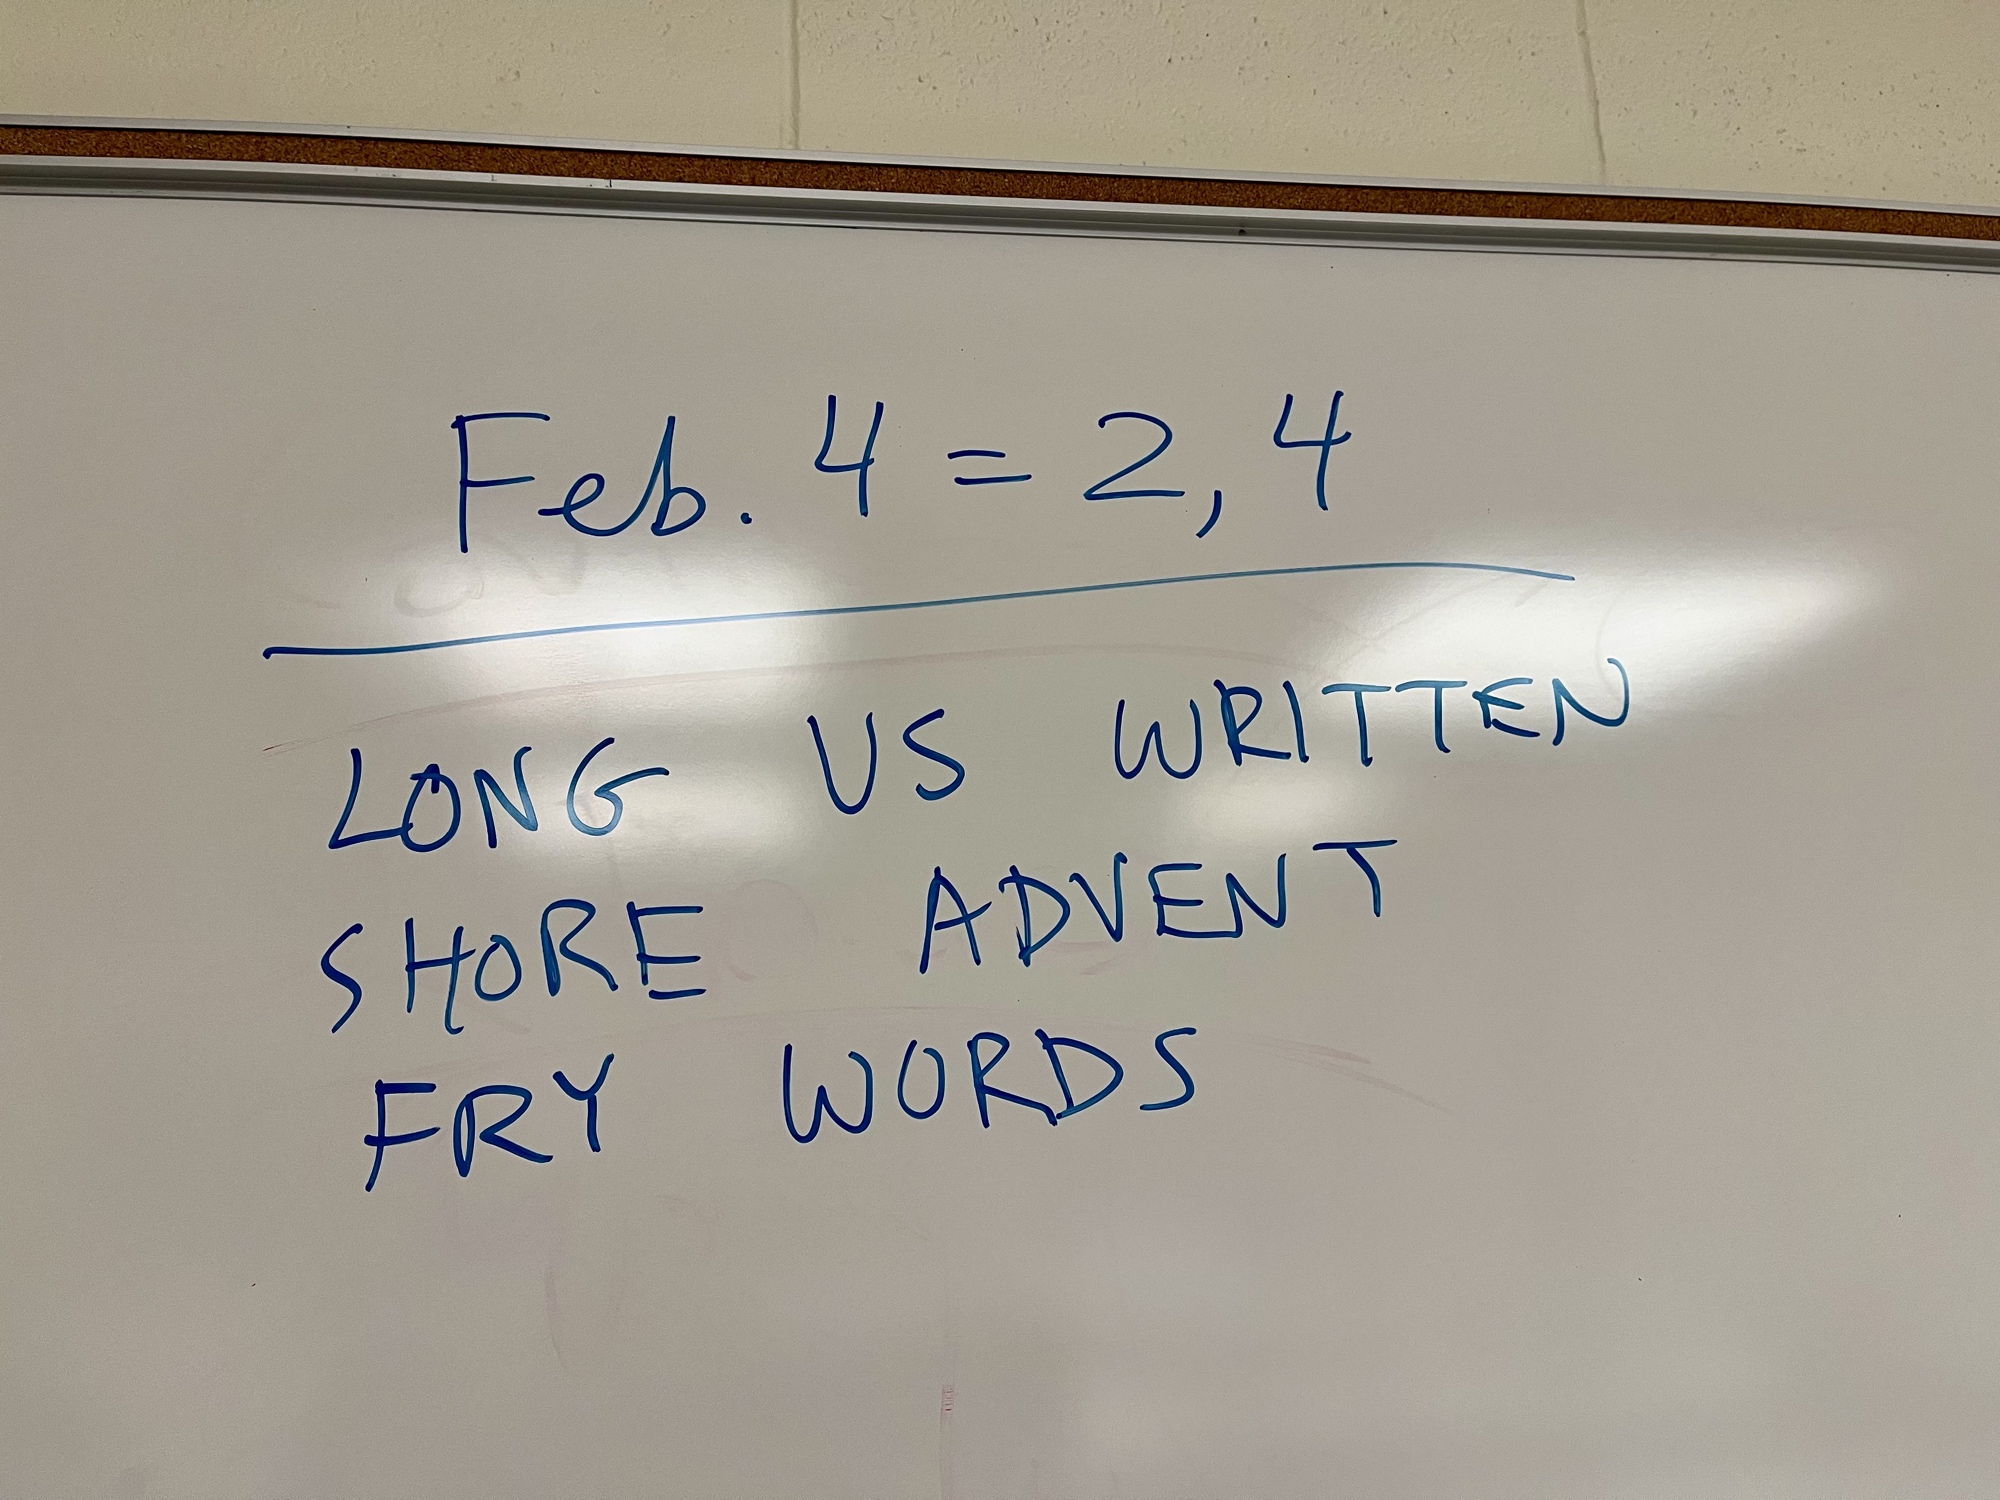 Feb. 4 = 2, 4
LONG US WRITTEN
SHORE ADVENT
FRY WORDS